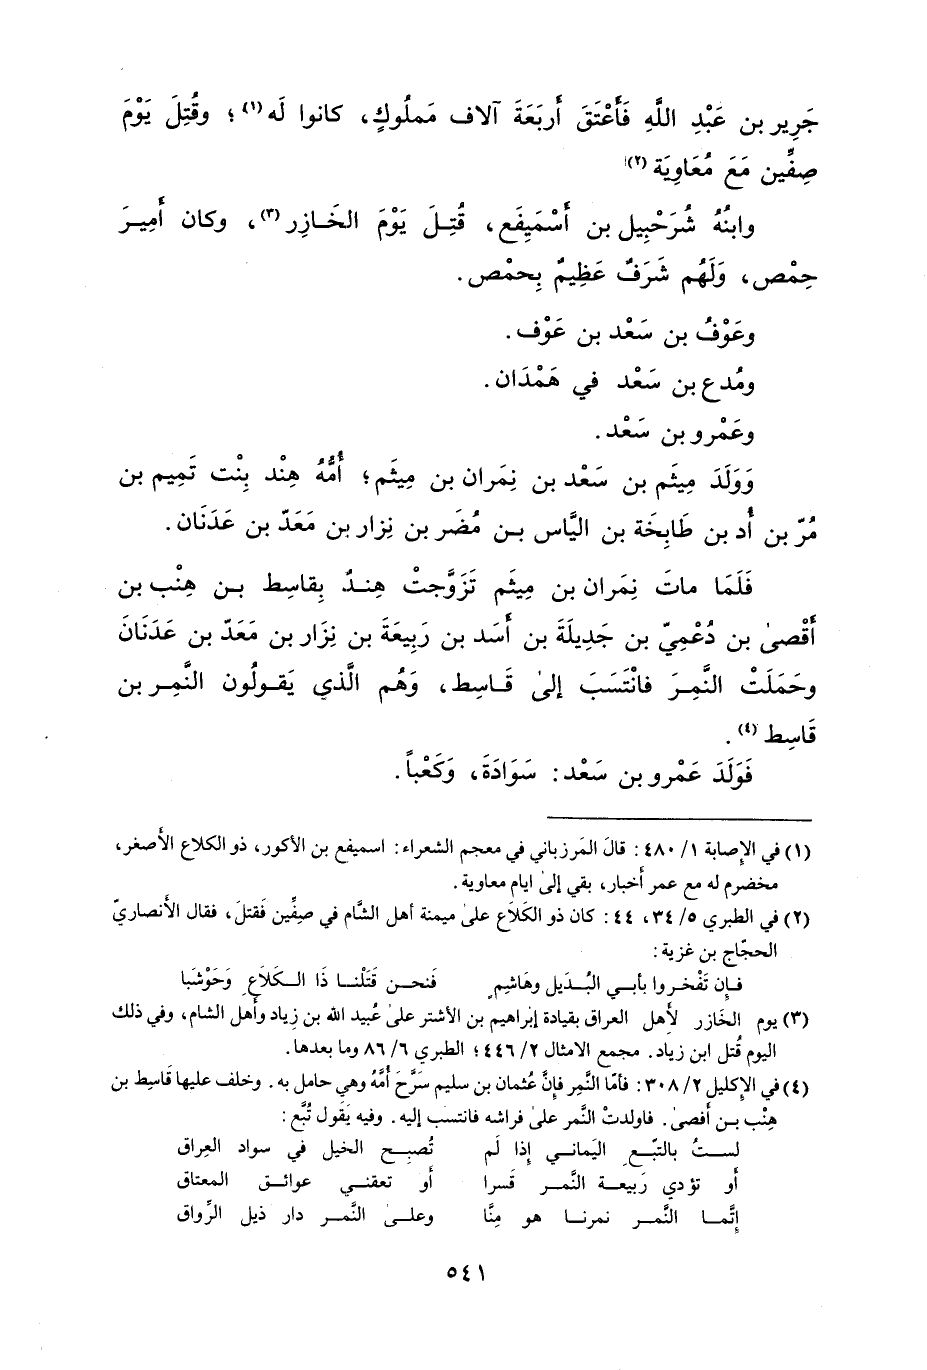 جَرِير بن عَبْدِ اللَّهِ فَأَعْتَقَ أَربَعَةَ آلاف مَملُوكٍ، كانوا لَه (١) ؛ وقُتِلَ يَوْمَ
صِفِّين مَعَ مُعَاوِيَة (٢)
وابنُهُ شُرَحْبِيل بن أَسْمَيفَع، قُتِلَ يَوْمَ الخَازِر (٣)، وكان أَمِيرَ
حِمْص، وَلَهُم شَرَفٌ عَظِيمٌ بِحمْص .
وعَوْفُ بن سَعْد بن عَوْف .
ومُدع بن سَعْد في هَمْدَان .
وعَمْرو بن سَعْد .
وَوَلَدَ مِيثَم بن سَعْد بن نِمَران بن مِيثَم ؛ أُمُّهُ هِنْد بِنْت تَمِيم بن
مُرّ بن أُد بن طَابِخَة بن الْيَّاس بن مُضَر بن نِزار بن مَعَدّ بن عَدَنَان .
فَلَمَا ماتَ نِمَران بن مِيثَم تَزَوَّجتْ هِندٌ بِقاسِط بن هِنْب بن
أَقْصىٰ بن دُعْمِيّ بن جَدِيلَةَ بن أَسَد بن رَبِيعَةَ بن نِزَار بن مَعَدّ بن عَدَنَانَ
وحَمَلَتْ النَّمِرَ فانْتَسَبَ إلىٰ قَاسِط، وَهُم الَّذي يَقولُون النَّمِر بن
قَاسِط (٤) .
فَوَلَدَ عَمْرو بن سَعْد : سَوَادَةَ، وَكَعْباً .
(١) في الإصابة ١/ ٤٨٠ : قالَ المَرزباني في معجم الشعراء : اسميفع بن الأكور، ذو الكلاع الأصغر،
مخضرم له مع عمر أخبار، بقي إلىٰ ايام معاوية .
(٢) في الطبري ٥/ ٣٤، ٤٤ : كان ذو الكَلَاع علىٰ ميمنة أهل الشَّام في صِفِّين فَقتلَ، فقال الأنصاريّ
الحجّاج بن غزية :
فإن تَفْخروا بأبي البُدَيل وهَاشِمٍ فَنحن قَتَلْنا ذَا الكَلَاعِ وَحَوْشَبا
(٣) يوم الخَازر لأهل العراق بقيادة إبراهيم بن الأشتر علىٰ عُبيد الله بن زياد وأهل الشام، وفي ذلك
اليوم قُتل ابن زياد. مجمع الامثال ٢/ ٤٤٦ ؛ الطبري ٦/ ٨٦ وما بعدها.
(٤) في الإكليل ٢/ ٣٠٨ : فأمّا النَّمِر فإنَّ عُثمان بن سليم سَرَّحَ أُمَّهُ وهي حامل به . وخلف عليها قَاسِط بن
هِنْب بن أفصىٰ . فاولدتْ النَّمر علىٰ فراشه فانتسب إليه . وفيه يَقول تُبَّع :
لستُ بالتبّع اليَماني إذا لَم تُصبح الخيل في سواد العِراق
أو تؤدي رَبيعة النَّمر قَسرا أو تعقني عوائق المعتاق
إنَّما النَّمر نمرنا هو مِنَّا وعلىٰ النَّمر دار ذيل الرِّواق
٥٤١